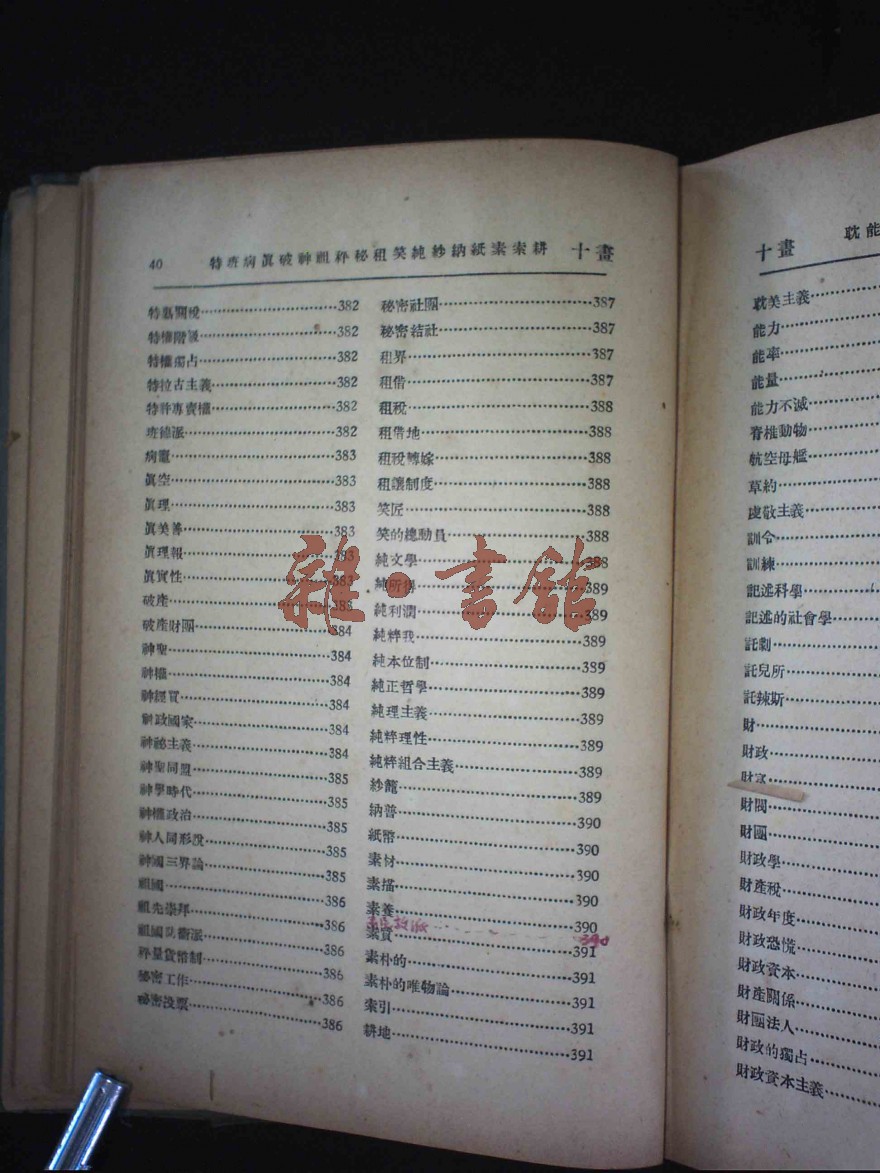 40 特班病眞破神祖秤秘租笑純紗納紙素索耕 十畫
特惠關稅……382
特權階級……382
特權獨占……382
特拉古主義……382
特許專賣權……382
班德派……382
病竈……383
眞空……383
眞理……383
眞美善……383
眞理報……383
眞實性……383
破產……383
破產財團……384
神聖……384
神權……384
神經質……384
神政國家……384
神祕主義……384
神聖同盟……385
神學時代……385
神權政治……385
神人同形說……385
神國三界論……385
祖國……386
祖先崇拜……386
祖國防衞派……386
秤量貨幣制……386
秘密工作……386
秘密投票……386
秘密社團……387
秘密結社……387
租界……387
租借……387
租稅……388
租借地……388
租稅轉嫁……388
租讓制度……388
笑匠……388
笑的總動員……388
純文學……388
純所得……389
純利潤……389
純粹我……389
純本位制……389
純正哲學……389
純理主義……389
純粹理性……389
純粹組合主義……389
紗籠……389
納普……390
紙幣……390
素材……390
素描……390
素養……390
390
素質……391
素朴的……391
素朴的唯物論……391
索引……391
耕地……391
十畫 耽能
耽美主義……
能力……
能率……
能量……
能力不滅……
脊椎動物……
航空母艦……
草約……
虔敬主義……
訓令……
訓練……
記述科學……
記述的社會學……
託劇……
託兒所……
託辣斯……
財……
財政……
財富……
財閥……
財團……
財政學……
財產稅……
財政年度……
財政恐慌……
財政資本……
財產關係……
財團法人……
財政的獨占……
財政資本主義……
雜·書館